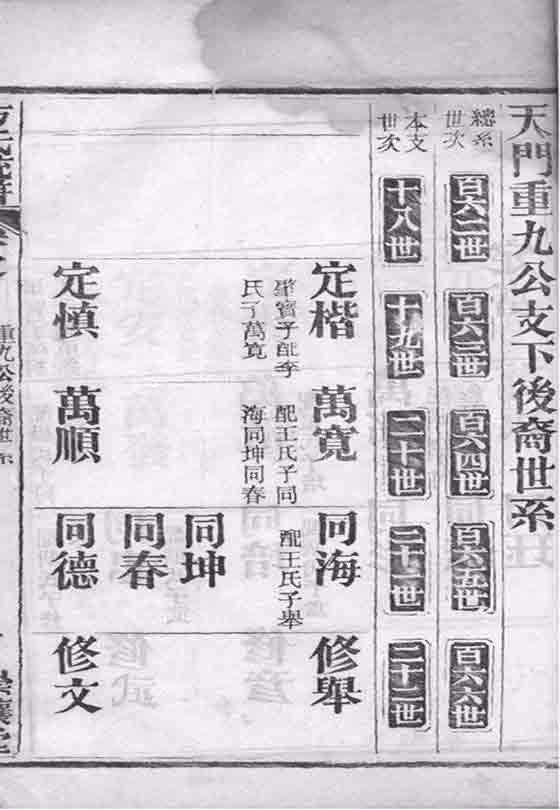 天門重九公支下後裔世系
總系
世次
百六二世
百六三世
百六四世
百六五世
百六六世
本支
世次
十八世
十九世
二十世
二十一世
二十二世
定楷
寶子配李
氏子萬寬
萬寬
配王氏子同
海同坤同春
同海
配王氏子舉
修舉
同坤
同春
定慎
萬順
同德
修文
重九公後裔世系